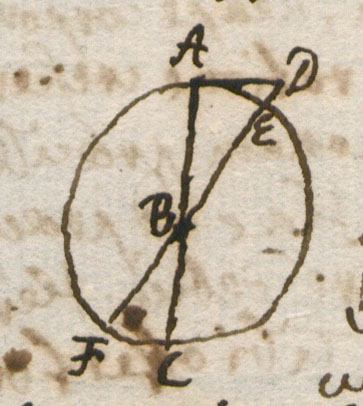 A
D
E
B
F
C